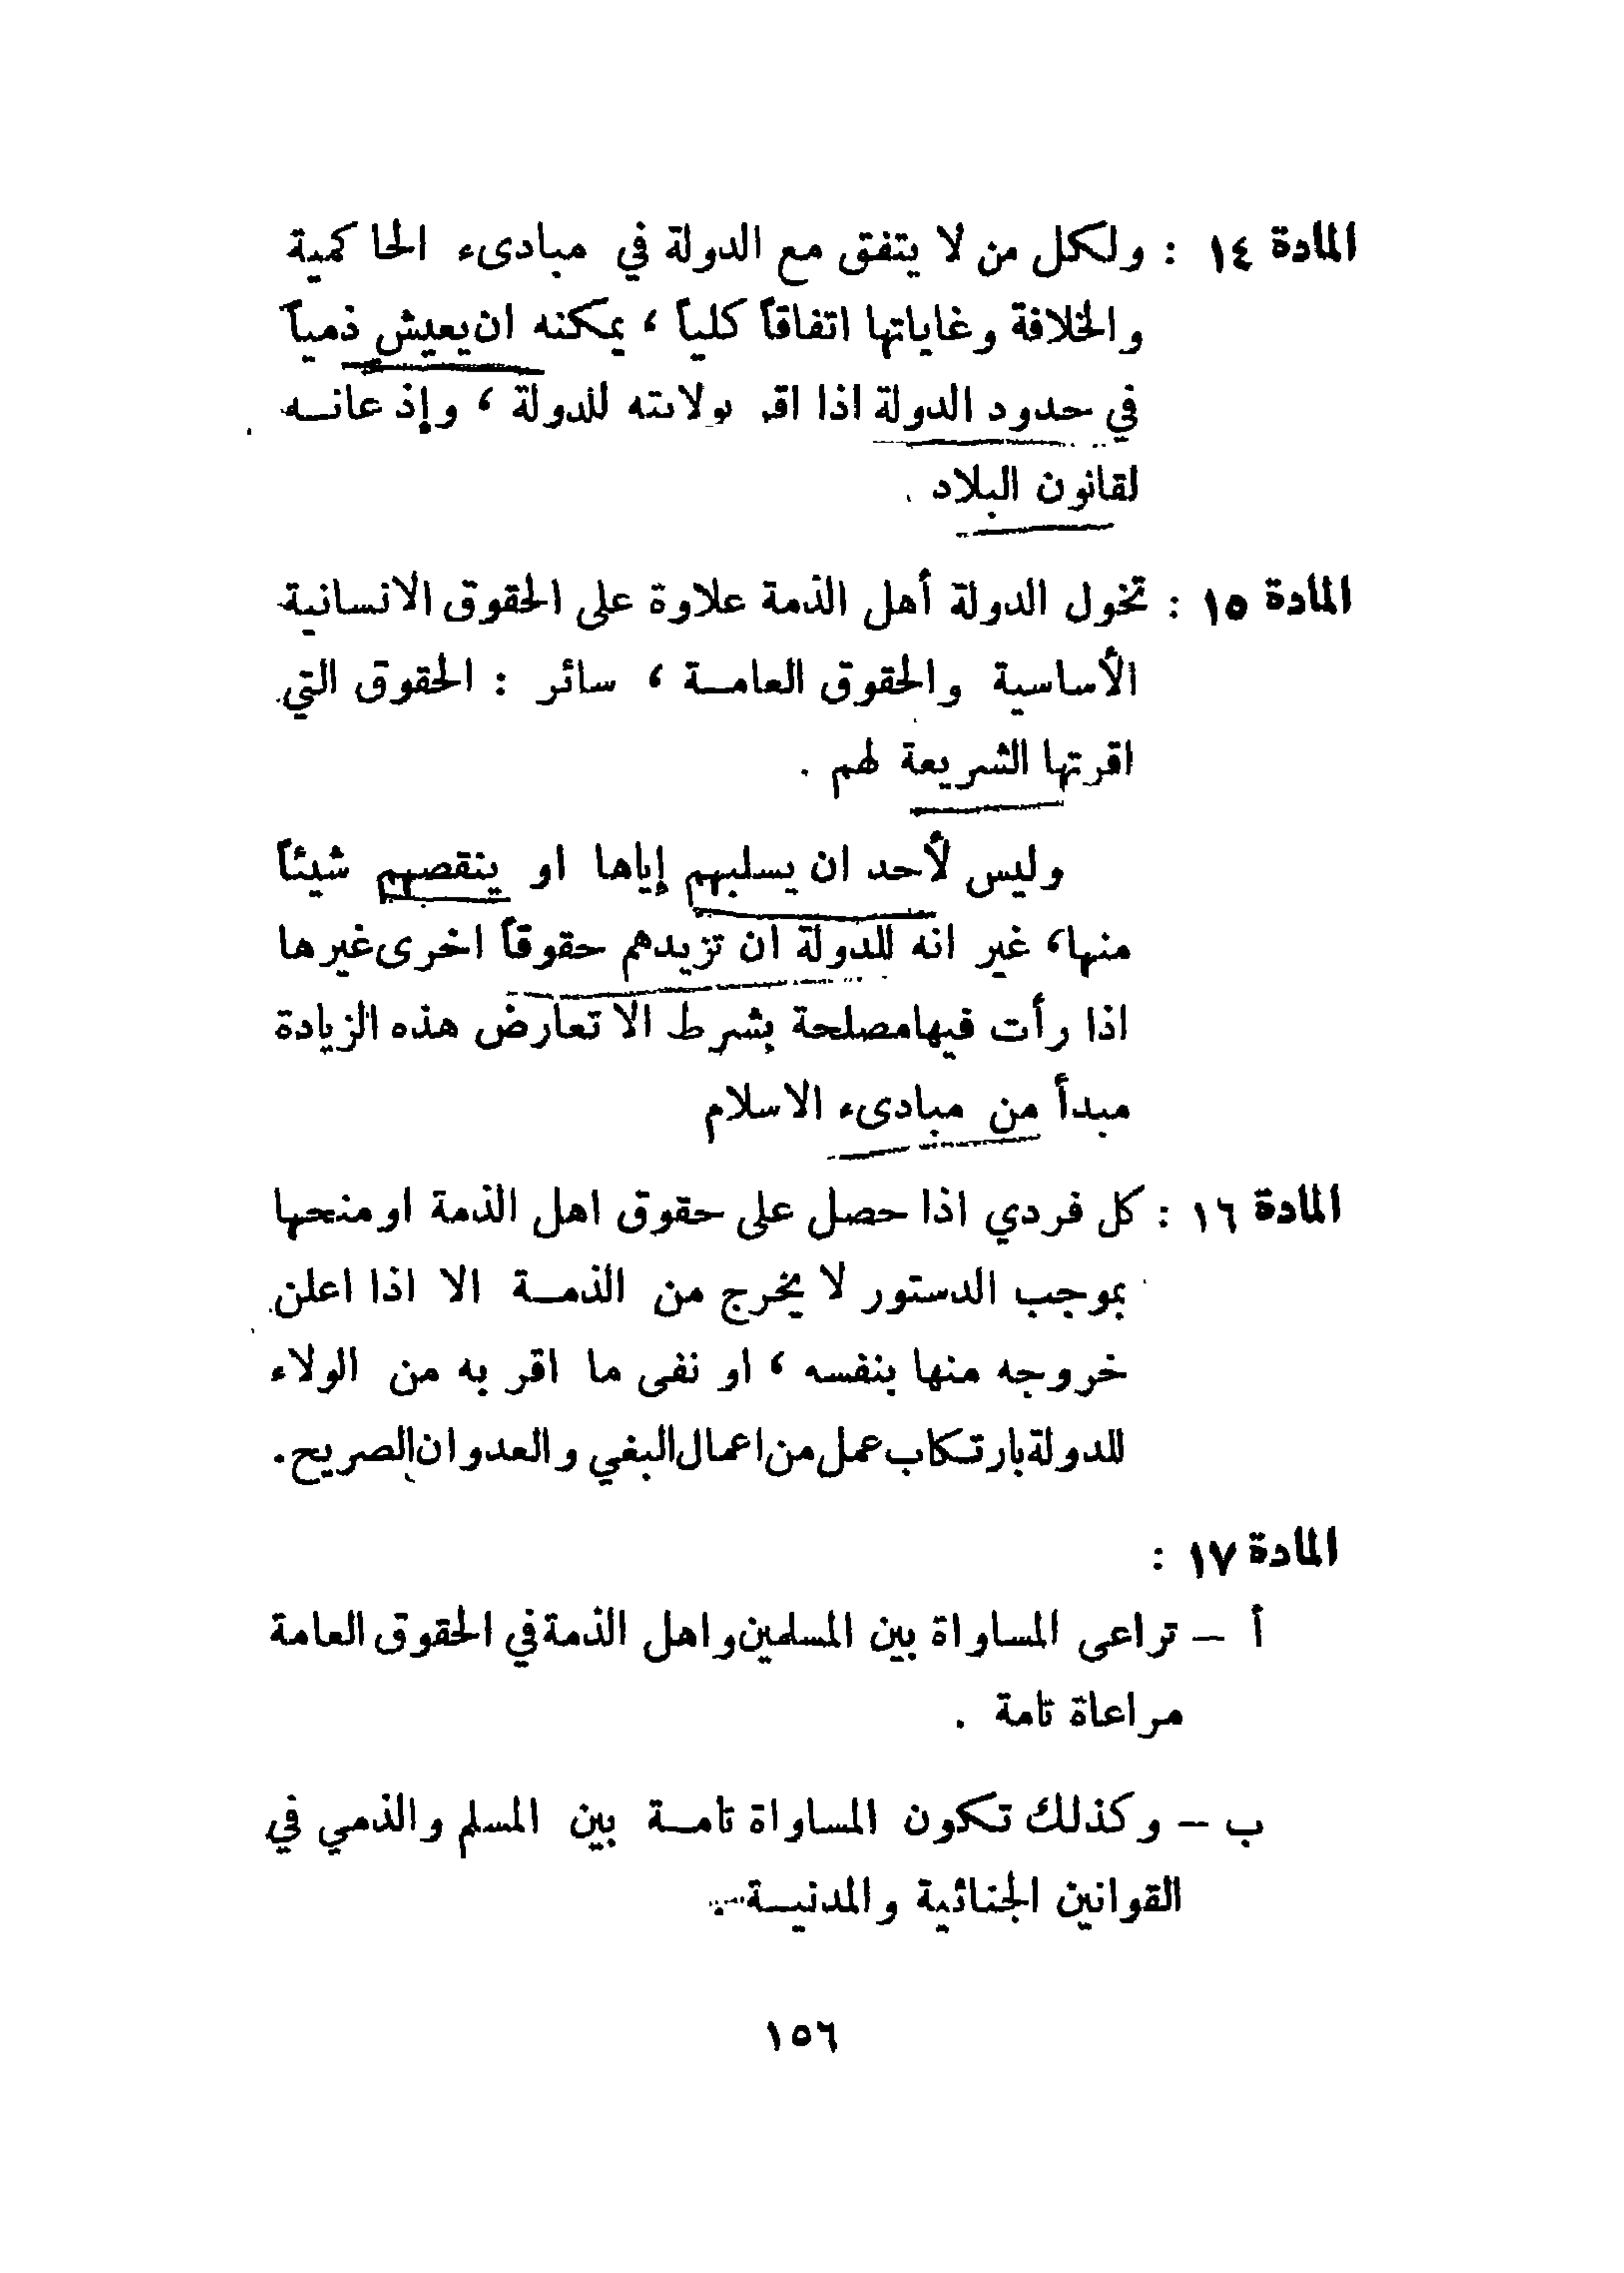 المادة ١٤ : ولكل من لا يتفق مع الدولة في مبادىء الحاكمية
والخلافة وغاياتها اتفاقاً كلياً ، يمكنه ان يعيش ذمياً
في حدود الدولة اذا اقر بولايته للدولة ، وإذعانه
لقانون البلاد .
المادة ١٥ : تخول الدولة أهل الذمة علاوة على الحقوق الانسانية
الأساسية والحقوق العامة ، سائر : الحقوق التي
اقرتها الشريعة لهم .
وليس لأحد ان يسلبهم إياها او ينقصهم شيئاً
منها ، غير انه للدولة ان تزيدهم حقوقاً اخرى غيرها
اذا رأت فيها مصلحة بشرط الا تعارض هذه الزيادة
مبدأ من مبادىء الاسلام
المادة ١٦ : كل فردي اذا حصل على حقوق اهل الذمة او منحها
بموجب الدستور لا يخرج من الذمة الا اذا اعلن
خروجه منها بنفسه ، او نفى ما اقر به من الولاء
للدولة بارتكاب عمل من اعمال البغي والعدوان الصريح .
المادة ١٧ :
أ – تراعى المساواة بين المسلمين واهل الذمة في الحقوق العامة
مراعاة تامة .
ب – وكذلك تكون المساواة تامة بين المسلم والذمي في
القوانين الجنائية والمدنية .
١٥٦